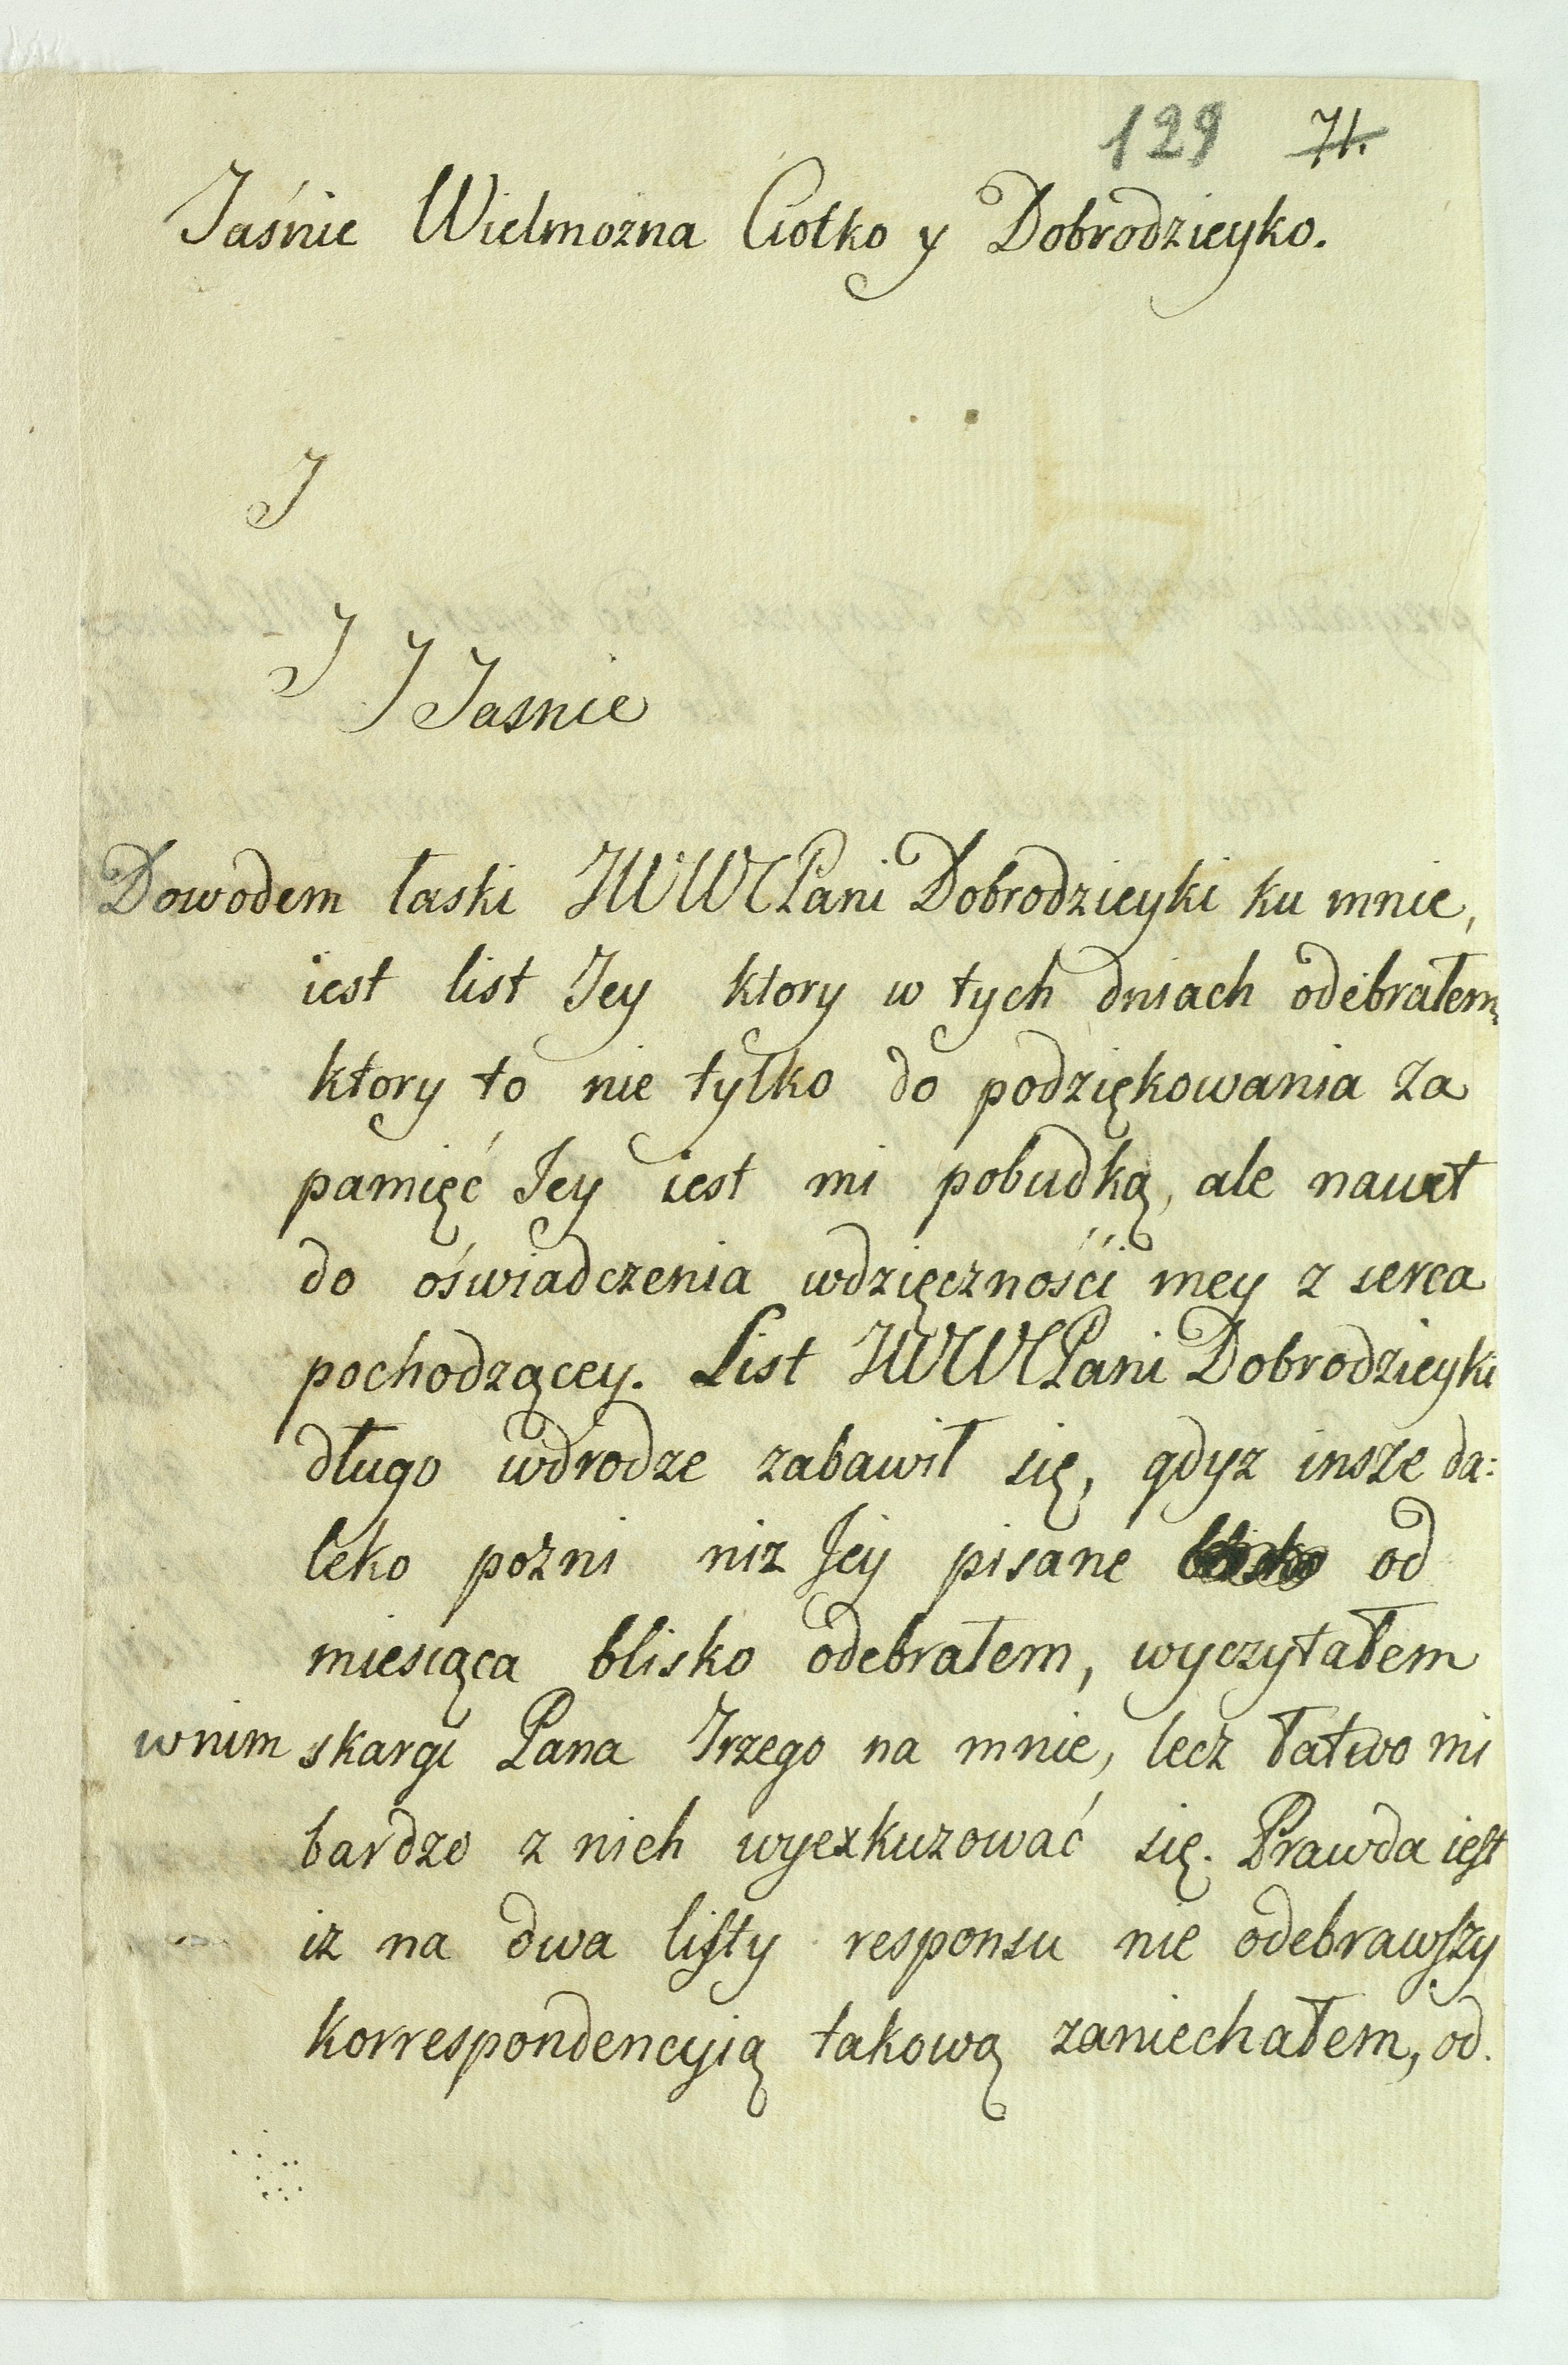 129 71.
Jaśnie Wielmozna Ciotko y Dobrodzieyko.
J
J J Jasnie
Dowodem łaski JWWMPani Dobrodzieyki ku mnie,
iest list Jey ktory w tych dniach odebrałem,
ktory to nie tylko do podziękowania za
pamięć Jey iest mi pobudką, ale nawet
do oświadczenia wdzięcznośći mey z serca
pochodzącey. List JWWMPani Dobrodzieyki
długo wdrodze zabawił się, gdyz insze da:
leko pozni niz Jey pisane blisko od
miesiąca blisko odebrałem, wyczytałem
wnim skargi Pana Jrzego na mnie, lecz łatwo mi
bardzo z nich wyexkuzować się. Prawda iest
iz na dwa listy responsu nie odebrawszy
korrespondencyią takową zaniechałem, od.